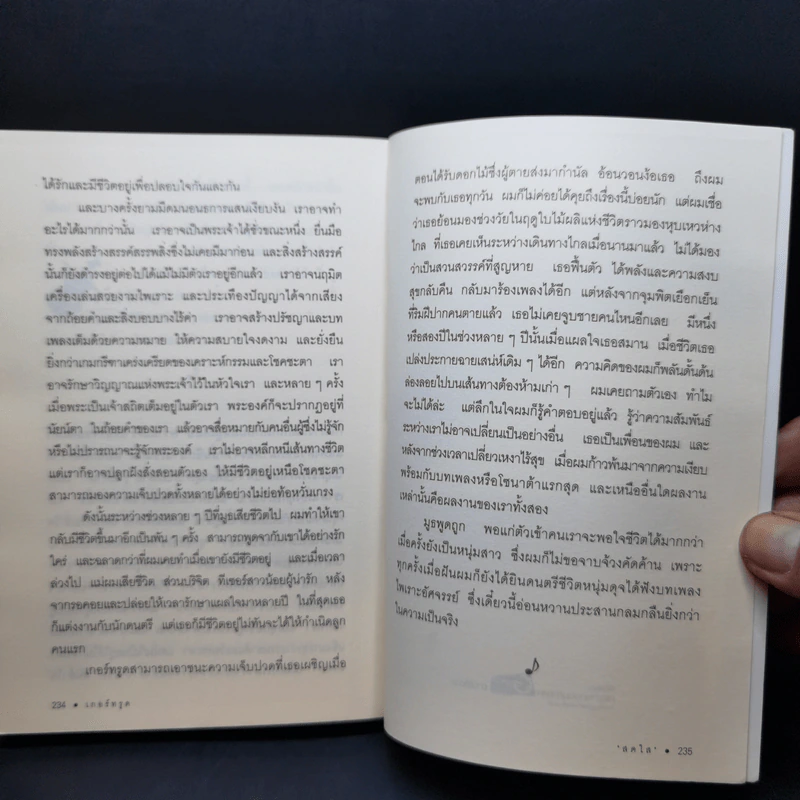 ได้รักและมีชีวิตอยู่เพื่อปลอบใจกันและกัน
และบางครั้งยามมีดมนอนธการแสนเงียบงัน เราอาจทำ
อะไรได้มากกว่านั้น เราอาจเป็นพระเจ้าได้ชั่วขณะหนึ่ง ยื่นมือ
ทรงพลังสร้างสรรค์สรรพสิ่งซึ่งไม่เคยมีมาก่อน และสิ่งสร้างสรรค์
นั้นก็ยังดำรงอยู่ต่อไปได้แม้ไม่มีตัวเราอยู่อีกแล้ว เราอาจนฤมิต
เครื่องเล่นสวยงามไพเราะ และประเทืองปัญญาได้จากเสียง
จากถ้อยคำและสิ่งบอบบางไร้ค่า เราอาจสร้างปรัชญาและบท
เพลงเต็มด้วยความหมาย ให้ความสบายใจงดงาม และยั่งยืน
ยิ่งกว่าเกมกรีฑาเคร่งเครียดของเคราะห์กรรมและโชคชะตา เรา
อาจรักษาวิญญาณแห่งพระเจ้าไว้ในหัวใจเรา และหลาย ๆ ครั้ง
เมื่อพระเป็นเจ้าสถิตเต็มอยู่ในตัวเรา พระองค์ก็จะปรากฏอยู่ที่
นัยน์ตา ในถ้อยคำของเรา แล้วอาจสื่อหมายกับคนอื่นผู้ซึ่งไม่รู้จัก
หรือไม่ปรารถนาจะรู้จักพระองค์ เราไม่อาจหลีกหนีเส้นทางชีวิต
แต่เราก็อาจปลูกฝังสั่งสอนตัวเอง ให้มีชีวิตอยู่เหนือโชคชะตา
สามารถมองความเจ็บปวดทั้งหลายได้อย่างไม่ย่อท้อหวั่นเกรง
ดังนั้นระหว่างช่วงหลาย ๆ ปีที่มูธเสียชีวิตไป ผมทำให้เขา
กลับมีชีวิตขึ้นมาอีกเป็นพัน ๆ ครั้ง สามารถพูดจากับเขาได้อย่างรัก
ใคร่ และฉลาดกว่าที่ผมเคยทำเมื่อเขายังมีชีวิตอยู่ และเมื่อเวลา
ล่วงไป แม่ผมเสียชีวิต ส่วนบริจิต ทีเซอร์สาวน้อยผู้น่ารัก หลัง
จากรอคอยและปล่อยให้เวลารักษาแผลใจมาหลายปี ในที่สุดเธอ
ก็แต่งงานกับนักดนตรี แต่เธอก็มีชีวิตอยู่ไม่ทันจะได้ให้กำเนิดลูก
คนแรก
เกอร์ทรูดสามารถเอาชนะความเจ็บปวดที่เธอเผชิญเมื่อ
234 • เกอร์ทรูด
ตอนได้รับดอกไม้ซึ่งผู้ตายส่งมากำนัล อ้อนวอนง้อเธอ ถึงผม
จะพบกับเธอทุกวัน ผมก็ไม่ค่อยได้คุยถึงเรื่องนี้บ่อยนัก แต่ผมเชื่อ
ว่าเธอย้อนมองช่วงวัยในฤดูใบไม้ผลิแห่งชีวิตราวมองหุบเหวห่าง
ไกล ที่เธอเคยเห็นระหว่างเดินทางไกลเมื่อนานมาแล้ว ไม่ได้มอง
ว่าเป็นสวนสวรรค์ที่สูญหาย เธอฟื้นตัว ได้พลังและความสงบ
สุขกลับคืน กลับมาร้องเพลงได้อีก แต่หลังจากจุมพิตเยือกเย็น
ที่ริมฝีปากคนตายแล้ว เธอไม่เคยจูบชายคนไหนอีกเลย มีหนึ่ง
หรือสองปีในช่วงหลาย ๆ ปีนั้นเมื่อแผลใจเธอสมาน เมื่อชีวิตเธอ
เปล่งประกายฉายเสน่ห์เดิม ๆ ได้อีก ความคิดของผมก็พลันดั้นด้น
ล่องลอยไปบนเส้นทางต้องห้ามเก่า ๆ ผมเคยถามตัวเอง ทำไม
จะไม่ได้ล่ะ แต่ลึกในใจผมก็รู้คำตอบอยู่แล้ว รู้ว่าความสัมพันธ์
ระหว่างเราไม่อาจเปลี่ยนเป็นอย่างอื่น เธอเป็นเพื่อนของผม และ
หลังจากช่วงเวลาเปลี่ยวเหงาไร้สุข เมื่อผมก้าวพ้นมาจากความเงียบ
พร้อมกับบทเพลงหรือโซนาต้าแรกสุด และเหนืออื่นใดผลงาน
เหล่านั้นคือผลงานของเราทั้งสอง
มูธพูดถูก พอแก่ตัวเข้าคนเราจะพอใจชีวิตได้มากกว่า
เมื่อครั้งยังเป็นหนุ่มสาว ซึ่งผมก็ไม่ขอจาบจ้วงคัดค้าน เพราะ
ทุกครั้งเมื่อฝันผมก็ยังได้ยินดนตรีชีวิตหนุ่มดุจได้ฟังบทเพลง
ไพเราะอัศจรรย์ ซึ่งเดี๋ยวนี้อ่อนหวานประสานกลมกลืนยิ่งกว่า
ในความเป็นจริง
'สดใส' • 235